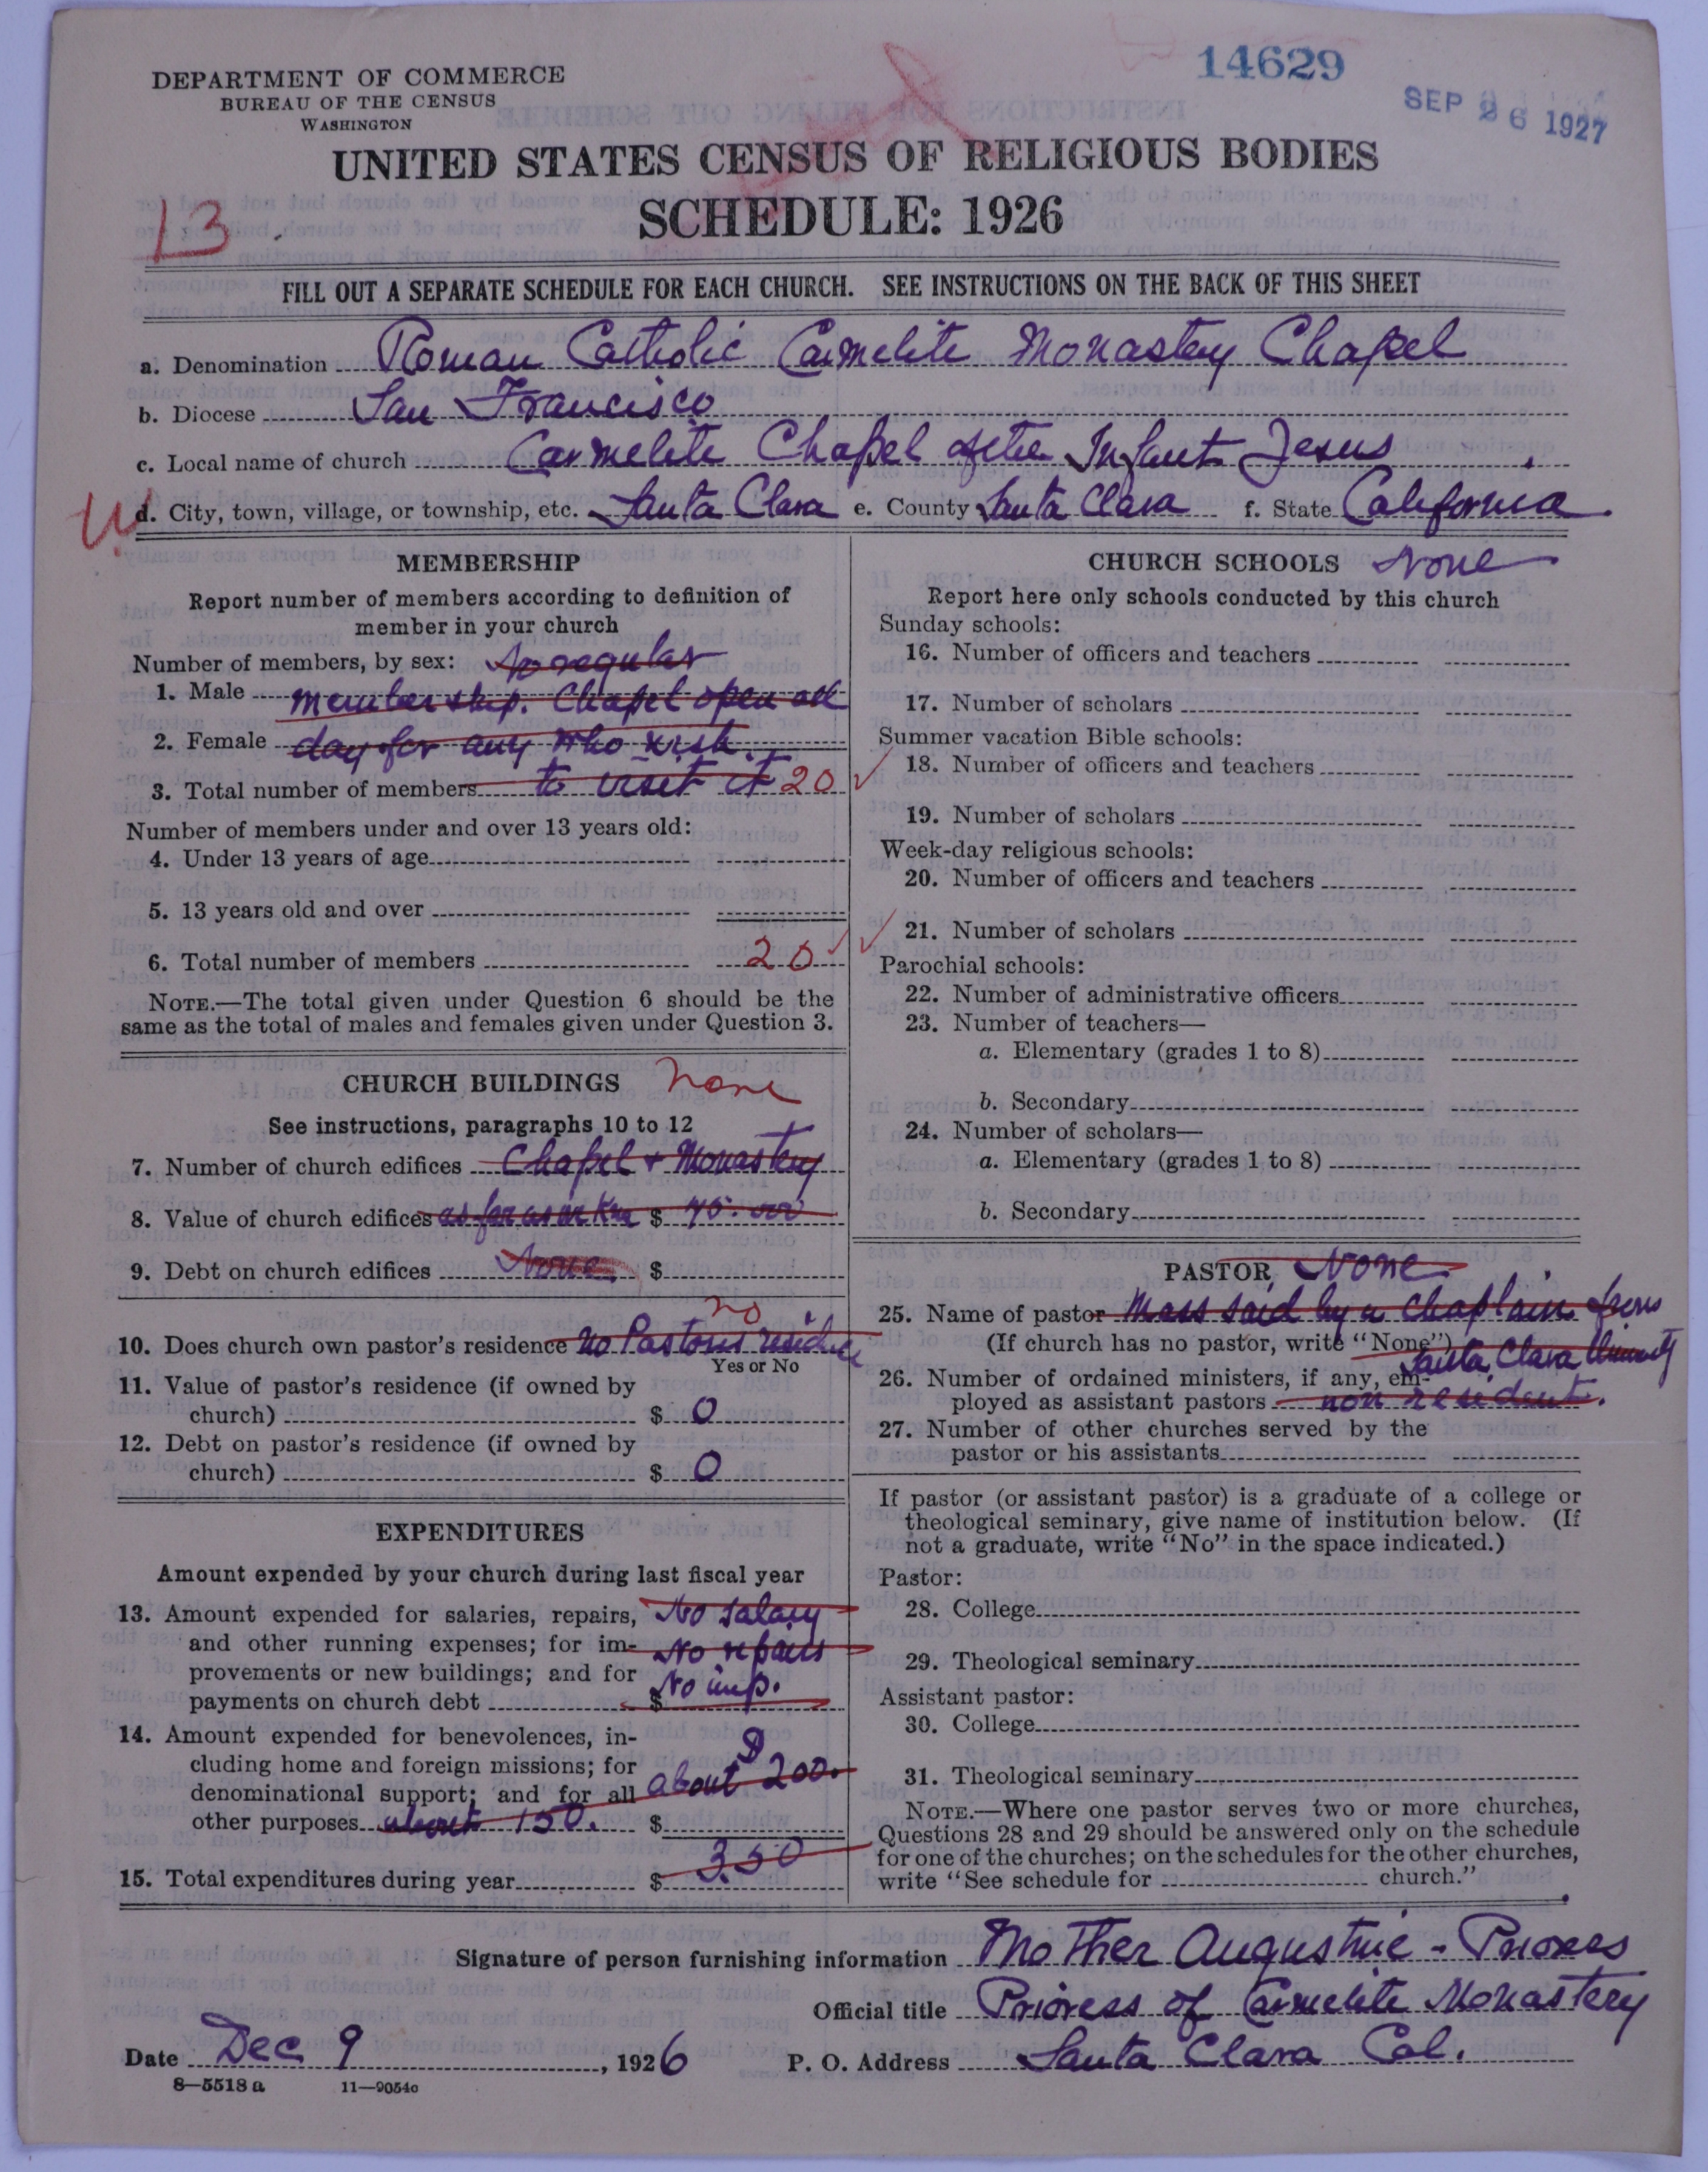 14629
SEP 26 1927
DEPARTMENT OF COMMERCE
BUREAU OF THE CENSUS
WASHINGTON
UNITED STATES CENSUS OF RELIGIOUS BODIES
SCHEDULE: 1926
13
FILL OUT A SEPARATE SCHEDULE FOR EACH CHURCH. SEE INSTRUCTIONS ON THE BACK OF THIS SHEET
a. Denomination Roman Catholic Carmelite Monastery Chapel
b. Diocese San Francisco
c. Local name of church Carmelite Chapel of the Infant Jesus
d. City, town, village, or township, etc. Santa Clara e. County Santa Clara f. State California.
MEMBERSHIP
Report number of members according to definition of
member in your church
Number of members, by sex: No regular
1. Male membership. Chapel open all
2. Female day for any who wish
3. Total number of members to visit it 20
Number of members under and over 13 years old:
4. Under 13 years of age
5. 13 years old and over
6. Total number of members 20
NOTE.—The total given under Question 6 should be the
same as the total of males and females given under Question 3.
CHURCH BUILDINGS none
See instructions, paragraphs 10 to 12
7. Number of church edifices Chapel + Monastery
8. Value of church edifices as far as we $
9. Debt on church edifices None. $
no
10. Does church own pastor's residence no Pastors residence
Yes or No
11. Value of pastor's residence (if owned by
church) $ 0
12. Debt on pastor's residence (if owned by
church) $ 0
EXPENDITURES
Amount expended by your church during last fiscal year
13. Amount expended for salaries, repairs, No salary
and other running expenses; for im- No repairs
provements or new buildings; and for
payments on church debt $ No imp.
14. Amount expended for benevolences, in-
cluding home and foreign missions; for
denominational support; and for all about $200.
other purposes about 150. $
15. Total expenditures during year $ 350
CHURCH SCHOOLS None
Report here only schools conducted by this church
Sunday schools:
16. Number of officers and teachers
17. Number of scholars
Summer vacation Bible schools:
18. Number of officers and teachers
19. Number of scholars
Week-day religious schools:
20. Number of officers and teachers
21. Number of scholars
Parochial schools:
22. Number of administrative officers
23. Number of teachers—
a. Elementary (grades 1 to 8)
b. Secondary
24. Number of scholars—
a. Elementary (grades 1 to 8)
b. Secondary
PASTOR None
25. Name of pastor Mass said by a Chaplain from
(If church has no pastor, write "None") Santa Clara University
26. Number of ordained ministers, if any, em-
ployed as assistant pastors non resident.
27. Number of other churches served by the
pastor or his assistants
If pastor (or assistant pastor) is a graduate of a college or
theological seminary, give name of institution below. (If
not a graduate, write "No" in the space indicated.)
Pastor:
28. College
29. Theological seminary
Assistant pastor:
30. College
31. Theological seminary
NOTE.—Where one pastor serves two or more churches,
Questions 28 and 29 should be answered only on the schedule
for one of the churches; on the schedules for the other churches,
write "See schedule for church."
Signature of person furnishing information Mother Augustine - Prioress
Official title Prioress of Carmelite Monastery
Date Dec 9, 1926 P. O. Address Santa Clara Cal.
8—5518 a 11—9054c